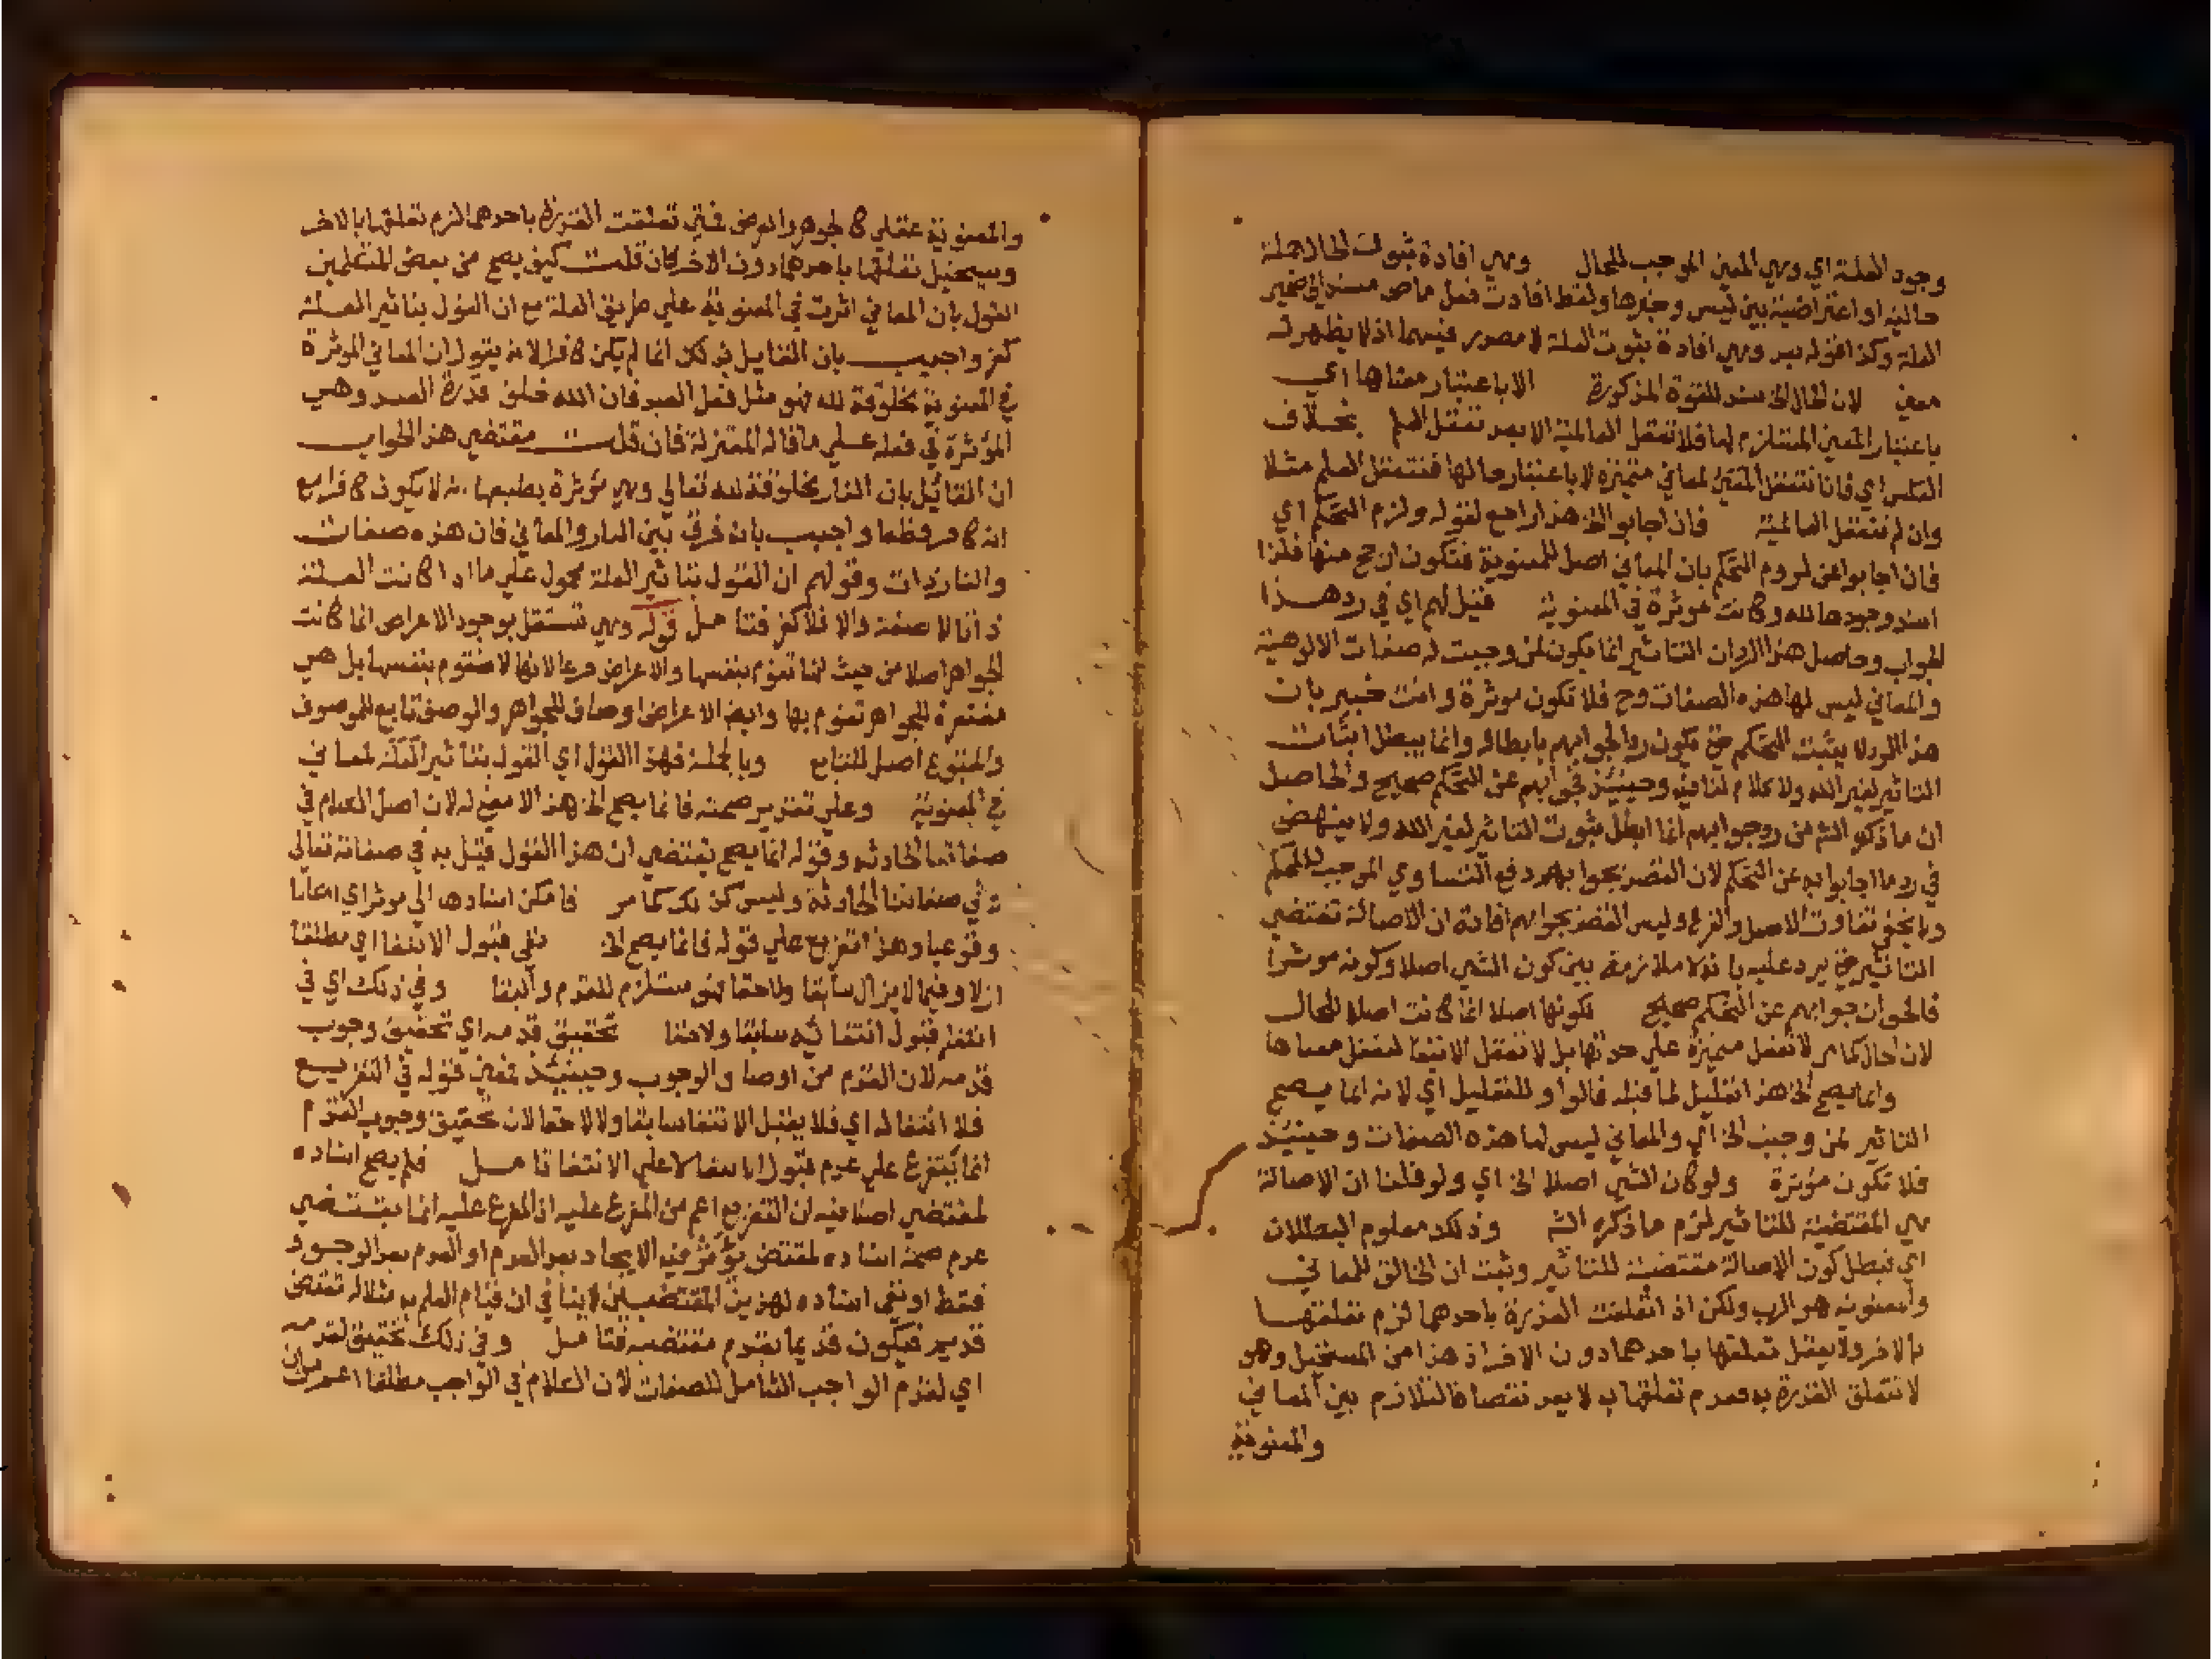 وجود العلة اي وهي المعنى الموجب للحال وهي افادة ثبوت الحال جملة
حالية او اعتراضية بين ليس وخبرها ولفظ افادت فعل ماض مسند الى ضمير
العلة وكذا قوله بعد وهي افادة ثبوت العلة لا مصدر فيهما اذ لا يظهر له
معنى لان الحال الخ سند للقوة المذكورة الا باعتبار معناها اي
باعتبار المعنى الملازم لها فلا تعقل العالمية الا بعد تعقل العلم بخلاف
العكس اي فانا نتعقل المعاني متميزة لا باعتبار حالها فنتعقل العلم مثلا
وان لم نتعقل العالمية فان اجابوا الخ هذا راجع لقوله ولزم التحكم اي
فان اجابوا عن لزوم التحكم بان المعاني اصل للمعنوية فتكون ارجح منها فلذا
اسند وجودها لله وكانت موثرة في المعنوية قيل لهم اي في رد هذا
الجواب وحاصل هذا الرد ان التاثير انما يكون لمن وجبت له صفات الالوهية
والمعاني ليس لها هذه الصفات وح فلا تكون موثرة وانت خبير بان
هذا الرد لا يثبت التحكم حتى يكون ردا لجوابهم بابطاله وانما يبطل اثبات
التاثير لغير الله ولا كلام لنا فيه وحينئذ فجوابهم عن التحكم صحيح والحاصل
ان ما ذكره الش من رد جوابهم انما ابطل ثبوت التاثير لغير الله ولا ينهض
في رد ما اجابوا به عن التحكم لان القصد بجوابهم دفع التساوي الموجب للتحكم
وبالحق تفاوت الاصل والفرع وليس القصد بجوابهم افادة ان الاصالة تقتضي
التاثير حتى يرد عليه بانه لا ملازمة بين كون الشي اصلا وكونه موثرا
فالحق ان جوابهم عن التحكم صحيح لكونها اصلا انما كانت اصلا للحال
لان الحال كما مر لا تعقل متميزة على حدتها بل لا تعقل الا تبعا لتعقل معناها
وانما يصح الخ هذا تعليل لما قبله فالواو للتعليل اي لانه انما يصح
التاثير لمن وجبت الخ اي والمعاني ليس لها هذه الصفات وحينئذ
فلا تكون موثرة ولو كان الشي اصلا الخ اي ولو قلنا ان الاصالة
هي المقتضية للتاثير لزم ما ذكره الش وذلك معلوم البطلان
اي فبطل كون الاصالة مقتضية للتاثير وثبت ان الخالق للمعاني
والمعنوية هو الرب ولكن اذ اتعلقت القدرة باحدهما لزم تعلقها
بالاخر ولا يعقل تعلقها باحدهما دون الاخر اذ هذا من المستحيل وهو
لا تتعلق القدرة به فعدم تعلقها به لا يعد نقصا فالتلازم بين المعاني
والمعنوية
والمعنوية عقلي كالجوهر والعرض فمتى تعلقت القدرة باحدهما لزم تعلقها بالاخر
ويستحيل تعلقها باحدهما دون الاخر فان قلت كيف يصح من بعض المتكلمين
القول بان المعاني اثرت في المعنوية على طريق العلة مع ان القول بتاثير العلة
كفر واجيب بان القايل بذلك انما لم يكن كافرا لانه يقول ان المعاني الموثرة
في المعنوية مخلوقة لله فهو مثل فعل العبد فان الله خلق قدرة العبد وهي
المؤثرة في فعله على ما قاله المعتزلة فان قلت مقتضى هذا الجواب
ان القائل بان النار مخلوقة لله تعالى وهي مؤثرة بطبعها انه لا يكون كافرا مع
انه كافر قطعا واجيب بانه فرق بين النار والمعاني فان هذه صفات
والنار ذات وقولهم ان القول بتاثير العلة محمول على ما اذا كانت العلة
ذاتا لا صفة والا فلا كفر فتامل قوله وهي تستقل بوجود الاعراض انما كانت
الجواهر اصلا من حيث انها تقوم بنفسها والاعراض فرعا لانها لا تقوم بنفسها بل هي
مفتقرة للجواهر تقوم بها وايضا الاعراض اوصاف للجواهر والوصف تابع للموصوف
والمتبوع اصل للتابع وبالجملة فهذا القول اي القول بتاثير العلة لمعاني
في المعنوية وعلى تقدير صحته فانما يصح الخ هذا لا معنى له لان اصل الكلام في
صفاتنا الحادثه وقوله انما يصح يقتضي ان هذا القول قيل به في صفاته تعالى
وفي صفاتنا الحادثة وليس كذلك كما مر فامكن اسنادها الى موثر اي امكانا
وقوعيا وهذا تفريع على قوله فانما يصح الخ نفي قبول الانتفا اي مطلقا
ازلا وفيما لا يزال سابقا ولاحقا فهو مستلزم للقدم والبقا وفي ذلك اي في
انتفا قبول انتفائه سابقا ولاحقا تحقيق قدمه اي تحقيق وجوب
قدمه لان القدم من اوصاف الوجوب وحينئذ فمعنى قوله في التفريع
فلا انتفا له اي فلا يقبل الانتفا سابقا ولا لاحقا لان تحقيق وجوب القدم
انما يتفرع على عدم قبول الانتفا لا على الانتفا تامل فلم يصح اسناده
لمقتضي اصلا فيه ان التفريع اعم من المفرع عليه اذ المفرع عليه انما يقتضي
عدم صحة اسناده لمقتض يؤثر فيه الايجاد بعد العدم او العدم بعد الوجود
فقط او نفى اسناده لهذين المقتضيين لا ينافي ان قيام العلم به مثلا له مقتض
قديم فيكون قديما بقدم مقتضيه فتامل وفي ذلك تحقيق لقدمه
اي لقدم الواجب الشامل للصفات لان الكلام في الواجب مطلقا اعم من